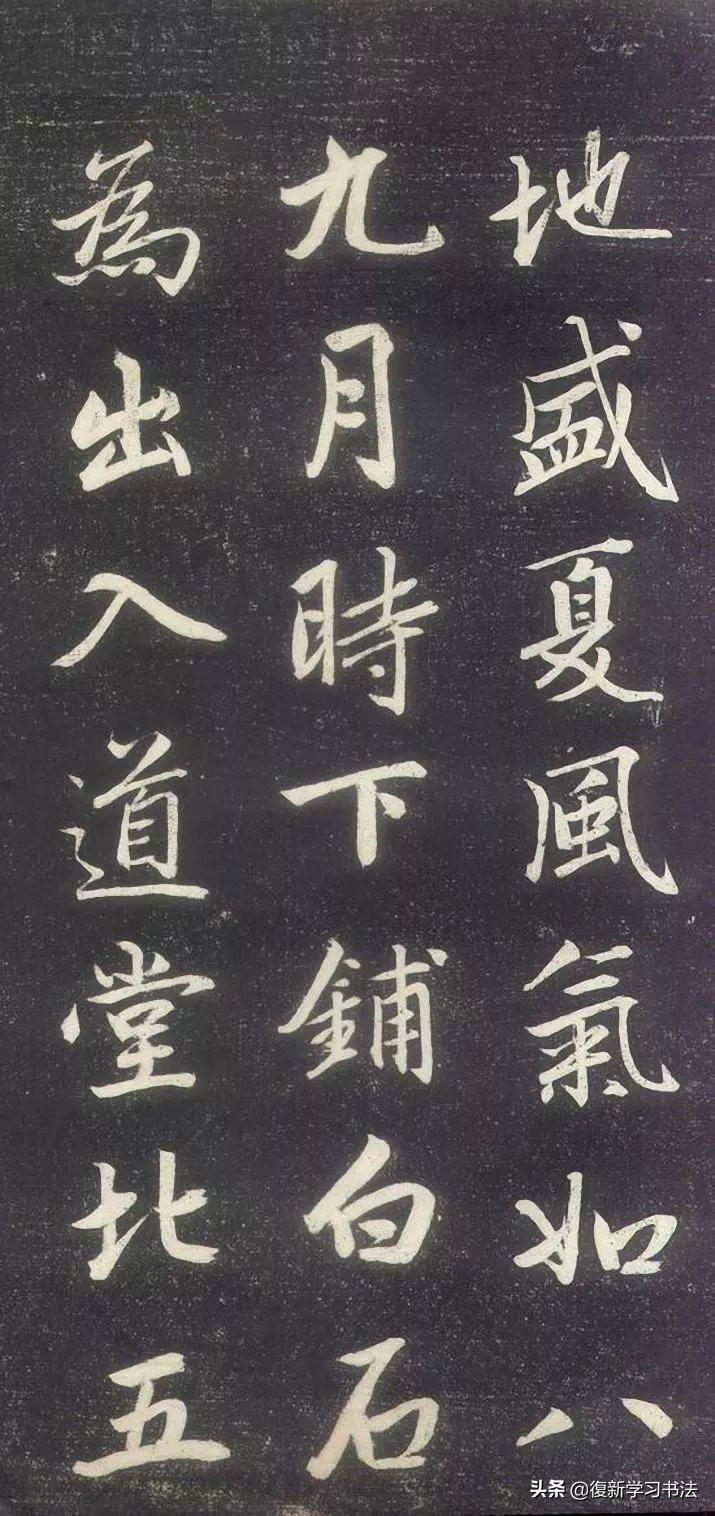 地盛夏風氣如八
九月時下鋪白石
為出入道堂北五
头条 @復新学习书法